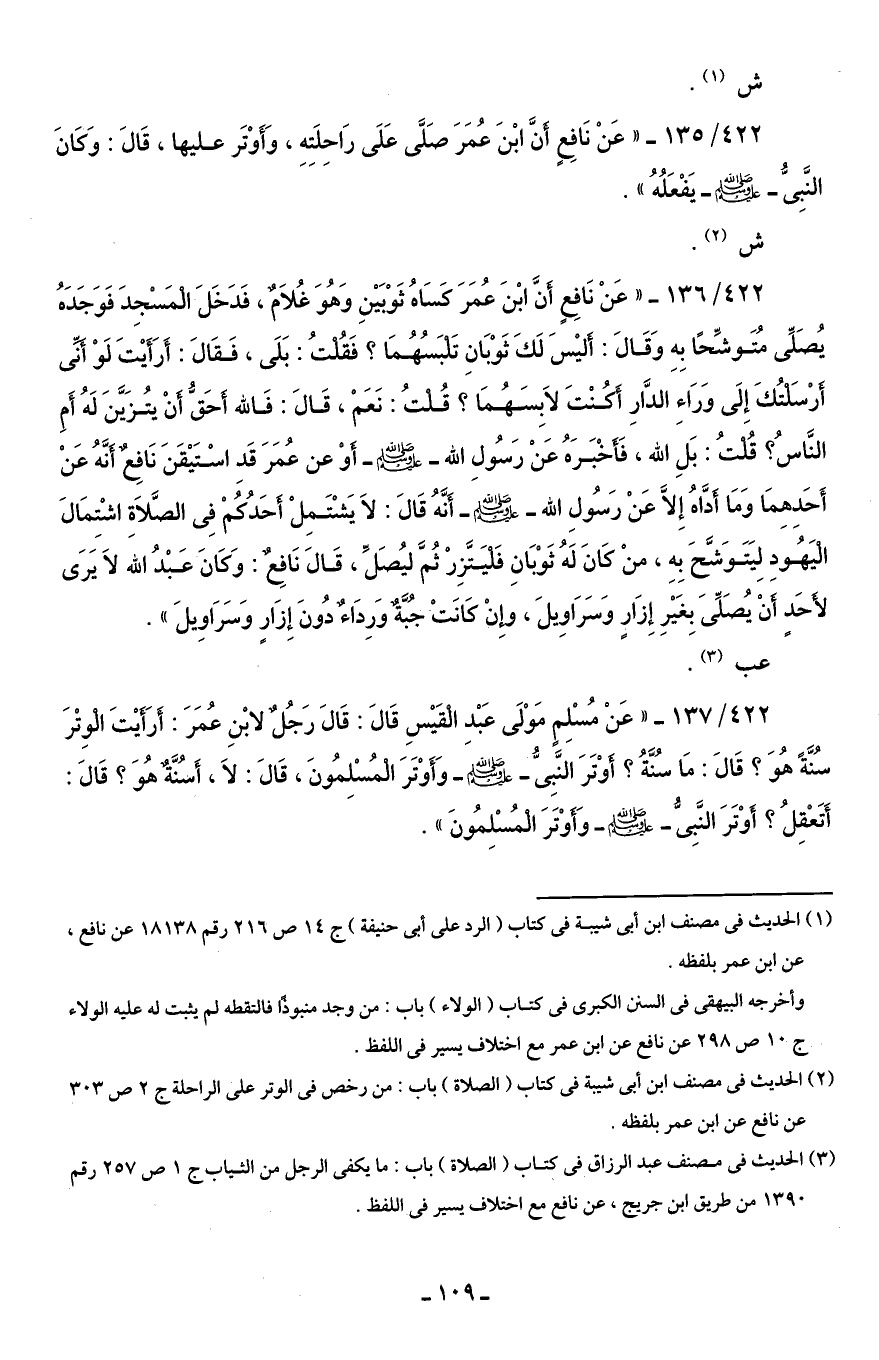 ش (١) .
٤٢٢/ ١٣٥ ـ « عَنْ نَافِعٍ أَنَّ ابْنَ عُمَرَ صَلَّى عَلَى رَاحِلَتِهِ ، وَأَوْتَر عليها ، قَالَ : وَكَانَ
النَّبِىُّ ـ ﷺ ـ يَفْعَلُهُ » .
ش (٢) .
٤٢٢/ ١٣٦ ـ « عَنْ نَافِعٍ أَنَّ ابْنَ عُمَرَ كَسَاهُ ثَوْبَيْنِ وَهُوَ غُلَامٌ ، فَدَخَلَ الْمَسْجِدَ فَوَجَدَهُ
يُصَلِّى مُتَوشِّحًا بِهِ وَقَالَ : أَلَيْسَ لَكَ ثَوْبَانِ تَلْبَسُهُمَا ؟ فَقُلْتُ : بَلَى ، فَقَالَ : أَرَأَيْتَ لَوْ أَنِّى
أَرْسَلْتُكَ إِلَى وَرَاءِ الدَّارِ أَكُنْتَ لاَبِسَهُمَا ؟ قُلْتُ : نَعَمْ ، قَالَ : فَالله أَحَقُّ أَنْ يتُزَيَّنَ لَهُ أَمِ
النَّاسُ؟ قُلْتُ : بَلِ الله ، فَأَخْبَرَهُ عَنْ رَسُولِ الله ـ ﷺ ـ أَوْ عن عُمَرَ قَدِ اسْتَيْقَنَ نَافِعٌ أَنَّهُ عَنْ
أَحَدِهِمَا وَمَا أَدَّاهُ إِلاَّ عَنْ رَسُولِ الله ـ ﷺ ـ أَنَّهُ قَالَ : لاَ يَشْتَمِلْ أَحَدُكُمْ فِى الصَّلَاةِ اشْتِمَالَ
الْيَهُودِ لِيَتَوَشَّحَ بِهِ ، مَنْ كَانَ لَهُ ثَوْبَانِ فَلْيَتَّزِرْ ثُمَّ لْيُصَلِّ ، قَالَ نَافِعٌ : وَكَانَ عَبْدُ الله لاَ يَرَى
لأَحَدٍ أَنْ يُصَلِّىَ بِغَيْرِ إِزَارٍ وَسَرَاوِيلَ ، وإِنْ كَانَتْ جُبَّةٌ وَرِدَاءٌ دُونَ إِزَارٍ وَسَرَاوِيلَ » .
عب (٣) .
٤٢٢/ ١٣٧ ـ « عَنْ مُسْلِمٍ مَوْلَى عَبْدِ الْقَيْسِ قَالَ : قَالَ رَجُلٌ لابْنِ عُمَرَ : أَرَأَيْتَ الْوِتْرَ
سُنَّةً هُوَ ؟ قَالَ : مَا سُنَّةُ ؟ أَوْتَرَ النَّبِىُّ ـ ﷺ ـ وَأَوْتَرَ الْمُسْلِمُونَ ، قَالَ : لاَ ، أَسُنَّةٌ هُوَ ؟ قَالَ :
أَتَعْقِلُ ؟ أَوْتَرَ النَّبِىُّ ـ ﷺ ـ وَأَوْتَرَ الْمُسْلِمُونَ » .
(١) الحديث فى مصنف ابن أبى شيبة فى كتاب ( الرد على أبى حنيفة ) ج ١٤ ص ٢١٦ رقم ١٨١٣٨ عن نافع ،
عن ابن عمر بلفظه .
وأخرجه البيهقى فى السنن الكبرى فى كتاب ( الولاء ) باب : من وجد منبوذًا فالتقطه لم يثبت له عليه الولاء
ج ١٠ ص ٢٩٨ عن نافع عن ابن عمر مع اختلاف يسير فى اللفظ .
(٢) الحديث فى مصنف ابن أبى شيبة فى كتاب ( الصلاة ) باب : من رخص فى الوتر على الراحلة ج ٢ ص ٣٠٣
عن نافع عن ابن عمر بلفظه .
(٣) الحديث فى مصنف عبد الرزاق فى كتاب ( الصلاة ) باب : ما يكفى الرجل من الثياب ج ١ ص ٢٥٧ رقم
١٣٩٠ من طريق ابن جريج ، عن نافع مع اختلاف يسير فى اللفظ .
ـ ١٠٩ ـ